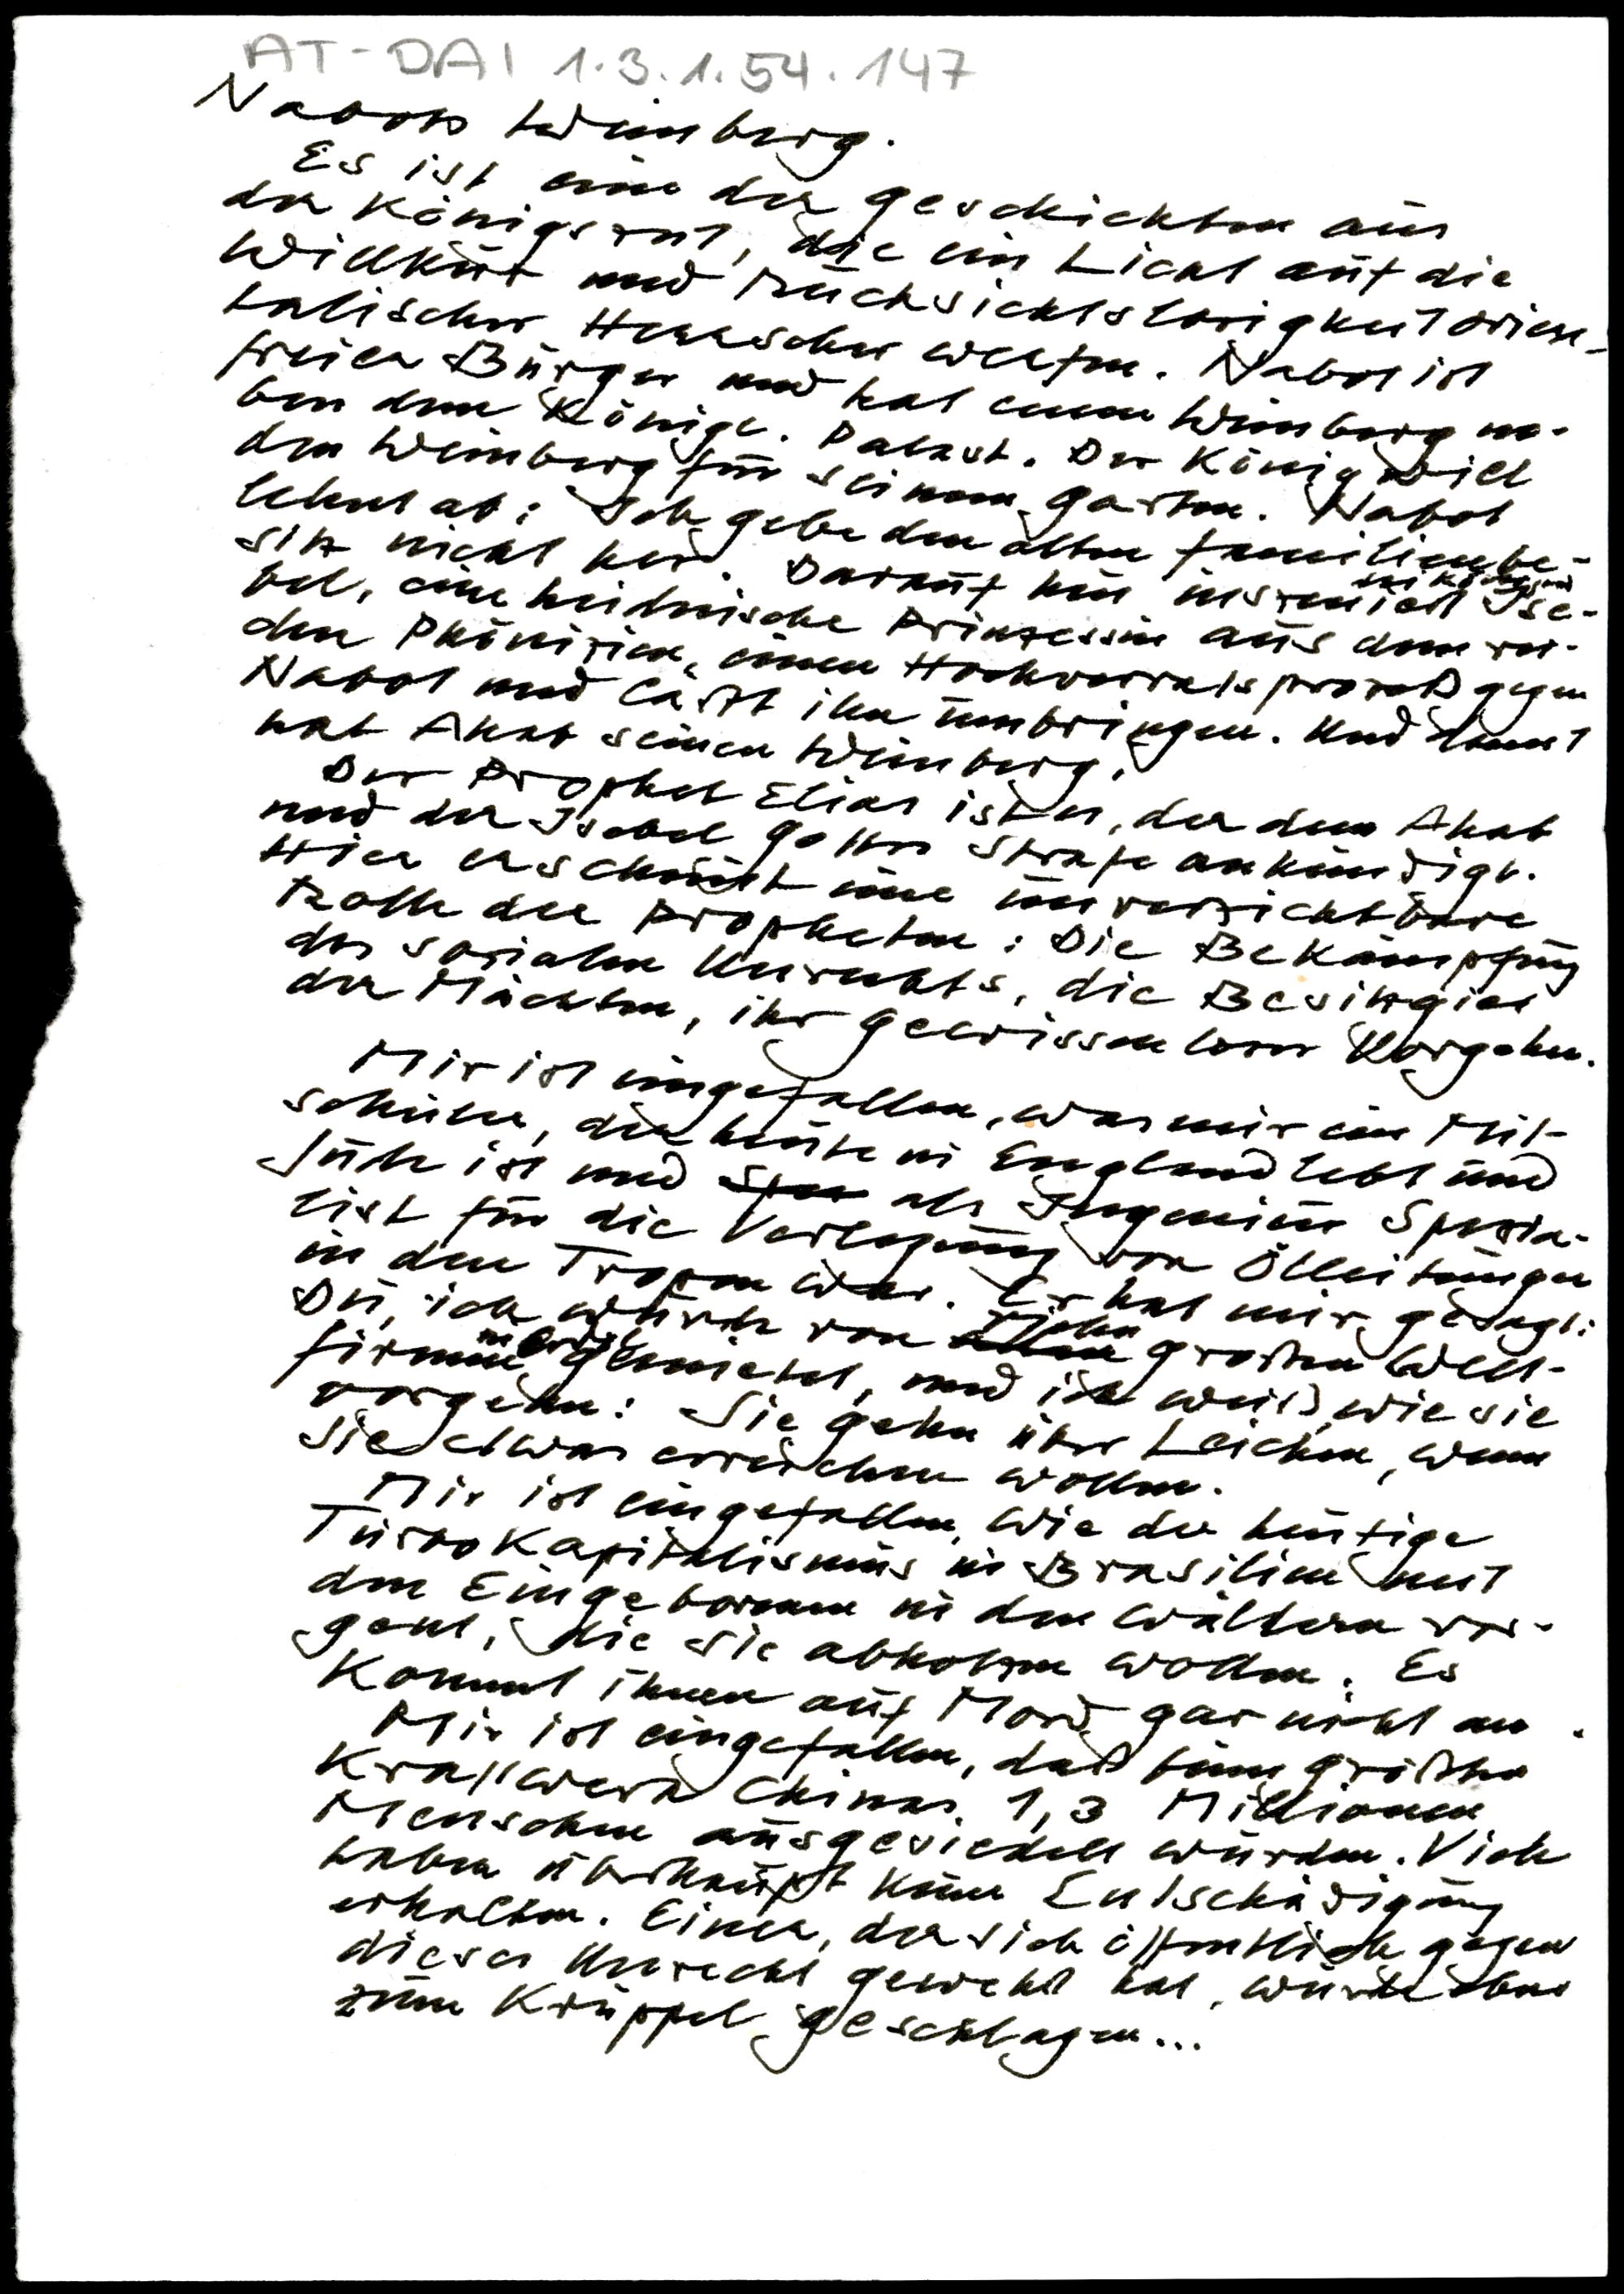 AT-DAI 1.3.1.54.147
Nabots Weinberg.
Es ist eine der Geschichten aus
der Königszeit, die ein Licht auf die
Willkür und Rücksichtslosigkeit orien-
talischer Herrscher werfen. Nabot ist
freier Bürger und hat einen Weinberg ne-
ben dem Königl. Palast. Der König will
den Weinberg für seinen Garten. Nabot
lehnt ab: Ich gebe den alten Familienbe-
sitz nicht her. Darauf hin inszeniert die Königin Ise-
bel, eine heidnische Prinzessin aus dem rei-
chen Phönizien, einen Hochverratsprozeß gegen
Nabot und läßt ihn umbringen. Und damit
hat Ahab seinen Weinberg.
Der Prophet Elias ist es, der dem Ahab
und der Isebel Gottes Strafe ankündigt.
Hier erscheint eine unverzichtbare
Rolle der Propheten: Die Bekämpfung
des sozialen Unrechts, die Besitzgier
der Mächten, ihr gewissenloses Vorgehen.
Mir ist eingefallen, was mir ein Mit-
schüler, der heute in England lebt und
Jude ist und als Ingenieur Spezia-
list für die Verlegung von Ölleitungen
in den Tropen war. Er hat mir gesagt:
Du, ich wurde von vielen großen Welt-
firmen gemietet, und ich weiß, wie sie
vorgehen: Sie gehn über Leichen, wenn
sie etwas erreichen wollen.
Mir ist eingefallen, wie der heutige
Turbokapitalismus in Brasilien mit
den Eingeborenen in den Wäldern vor-
geht, die sie abholzen wollen. Es
kommt ihnen auf Mord gar nicht an.
Mir ist eingefallen, daß beim größten
Kraftwerk Chinas 1,3 Millionen
Menschen ausgesiedelt wurden. Viele
haben überhaupt keine Entschädigung
erhalten. Einer, der sich öffentlich gegen
dieses Unrecht gewehrt hat, wurde
zum Krüppel geschlagen...